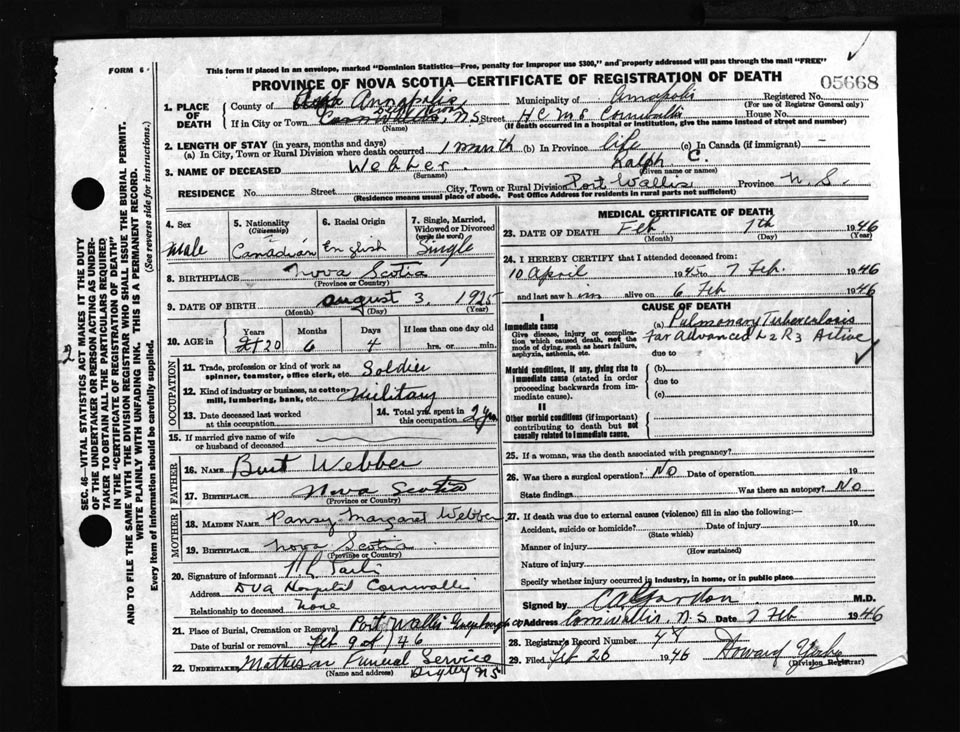 FORM 6
This form if placed in an envelope, marked "Dominion Statistics—Free, penalty for improper use $300," and properly addressed will pass through the mail "FREE"
PROVINCE OF NOVA SCOTIA—CERTIFICATE OF REGISTRATION OF DEATH
05668
1. PLACE OF DEATH
County of Annapolis Municipality of Annapolis Registered No.
(For use of Registrar General only)
If in City or Town Cornwallis, N.S. Street H C M S Cornwallis House No.
(Name) (If death occurred in a hospital or institution, give the name instead of street and number)
2. LENGTH OF STAY (in years, months and days)
(a) In City, Town or Rural Division where death occurred 1 month (b) In Province life (c) In Canada (if immigrant) —
3. NAME OF DECEASED Webber Ralph C.
(Surname) (Given name or names)
RESIDENCE No. Street City, Town or Rural Division Port Wallis Province N. S.
(Residence means usual place of abode. Post Office Address for residents in rural parts not sufficient)
4. Sex male
5. Nationality (Citizenship) Canadian
6. Racial Origin English
7. Single, Married, Widowed or Divorced (write the word) Single
8. BIRTHPLACE Nova Scotia
(Province or Country)
9. DATE OF BIRTH August 3, 1925
(Month) (Day) (Year)
10. AGE in Years 20 Months 6 Days 4 If less than one day old hrs. or min.
OCCUPATION
11. Trade, profession or kind of work as spinner, teamster, office clerk, etc. Soldier
12. Kind of industry or business, as cotton-mill, lumbering, bank, etc. Military
13. Date deceased last worked at this occupation
14. Total yrs. spent in this occupation 2 yrs
15. If married give name of wife or husband of deceased
FATHER
16. NAME Burt Webber
17. BIRTHPLACE Nova Scotia
(Province or Country)
MOTHER
18. MAIDEN NAME Pansy Margaret Webber
19. BIRTHPLACE Nova Scotia
(Province or Country)
20. Signature of informant
Address DVA Hospital Cornwallis
Relationship to deceased None
21. Place of Burial, Cremation or Removal Port Wallis Guysborough co
Date of burial or removal Feb 9 of 1946
22. UNDERTAKER Matheson Funeral Service
(Name and address) Digby NS
MEDICAL CERTIFICATE OF DEATH
23. DATE OF DEATH Feb 7th 1946
(Month) (Day) (Year)
24. I HEREBY CERTIFY that I attended deceased from:
10 April 1945 to 7 Feb. 1946
and last saw him alive on 6 Feb 1946
CAUSE OF DEATH
I
Immediate cause
Give disease, injury or complication which caused death, not the mode of dying, such as heart failure, asphyxia, asthenia, etc.
(a) Pulmonary Tuberculosis
Far Advanced L2 R3 Active
due to
Morbid conditions, if any, giving rise to immediate cause (stated in order proceeding backwards from immediate cause).
(b)
due to
(c)
II
Other morbid conditions (if important) contributing to death but not causally related to immediate cause.
25. If a woman, was the death associated with pregnancy?
26. Was there a surgical operation? No Date of operation 19
State findings Was there an autopsy? No
27. If death was due to external causes (violence) fill in also the following:—
Accident, suicide or homicide? Date of injury 19
(State which)
Manner of injury
(How sustained)
Nature of injury
Specify whether injury occurred in industry, in home, or in public place
Signed by C A Gordon M.D.
Address Cornwallis, N.S Date 7 Feb 1946
28. Registrar's Record Number 48
29. Filed Feb 26 1946 Howard
(Division Registrar)
SEC. 46—VITAL STATISTICS ACT MAKES IT THE DUTY OF THE UNDERTAKER OR PERSON ACTING AS UNDERTAKER TO OBTAIN ALL THE PARTICULARS REQUIRED IN THE "CERTIFICATE OF REGISTRATION OF DEATH" AND TO FILE THE SAME WITH THE DIVISION REGISTRAR WHO SHALL ISSUE THE BURIAL PERMIT.
WRITE PLAINLY WITH UNFADING INK. THIS IS A PERMANENT RECORD.
Every item of information should be carefully supplied. (See reverse side for instructions.)
2